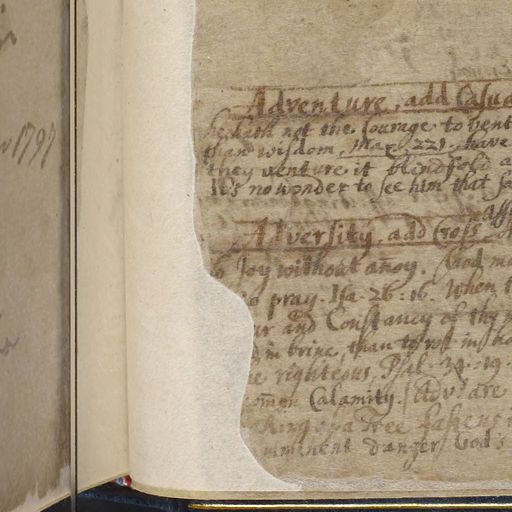 1791
Adventure, add Casua
he hath not the Courage to vent
than wisdom, Max. 221. have
they venture it blindfold a
It's no wonder to see him that fa
Adversity, add Cross,
Joy without añoy. God ma
pray. Isa. 26:16. When t
ur and Constancy of thy
in brine, than to rot in ho
e righteous, Psal. 34.19.
com̃on Calamity. Adv: are
of a Tree fastens
mminent danger God's